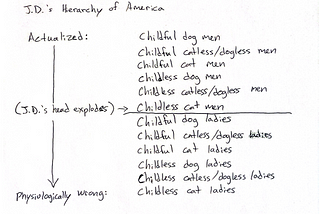 J.D.'s Hierarchy of America
Actualized:
Childful dog men
Childful catless/dogless men
Childful cat men
Childless dog men
Childless catless/dogless men
(J.D.'s head explodes) → Childless cat men
Childful dog ladies
Childful catless/dogless ladies
Childful cat ladies
Childless dog ladies
Childless catless/dogless ladies
Physiologically wrong: Childless cat ladies